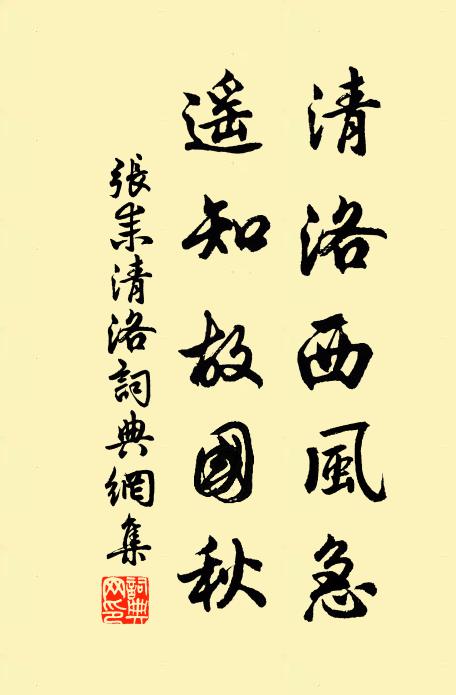 清洛西風急
遥知故國秋
張耒清洛詞典網集
詞典网印